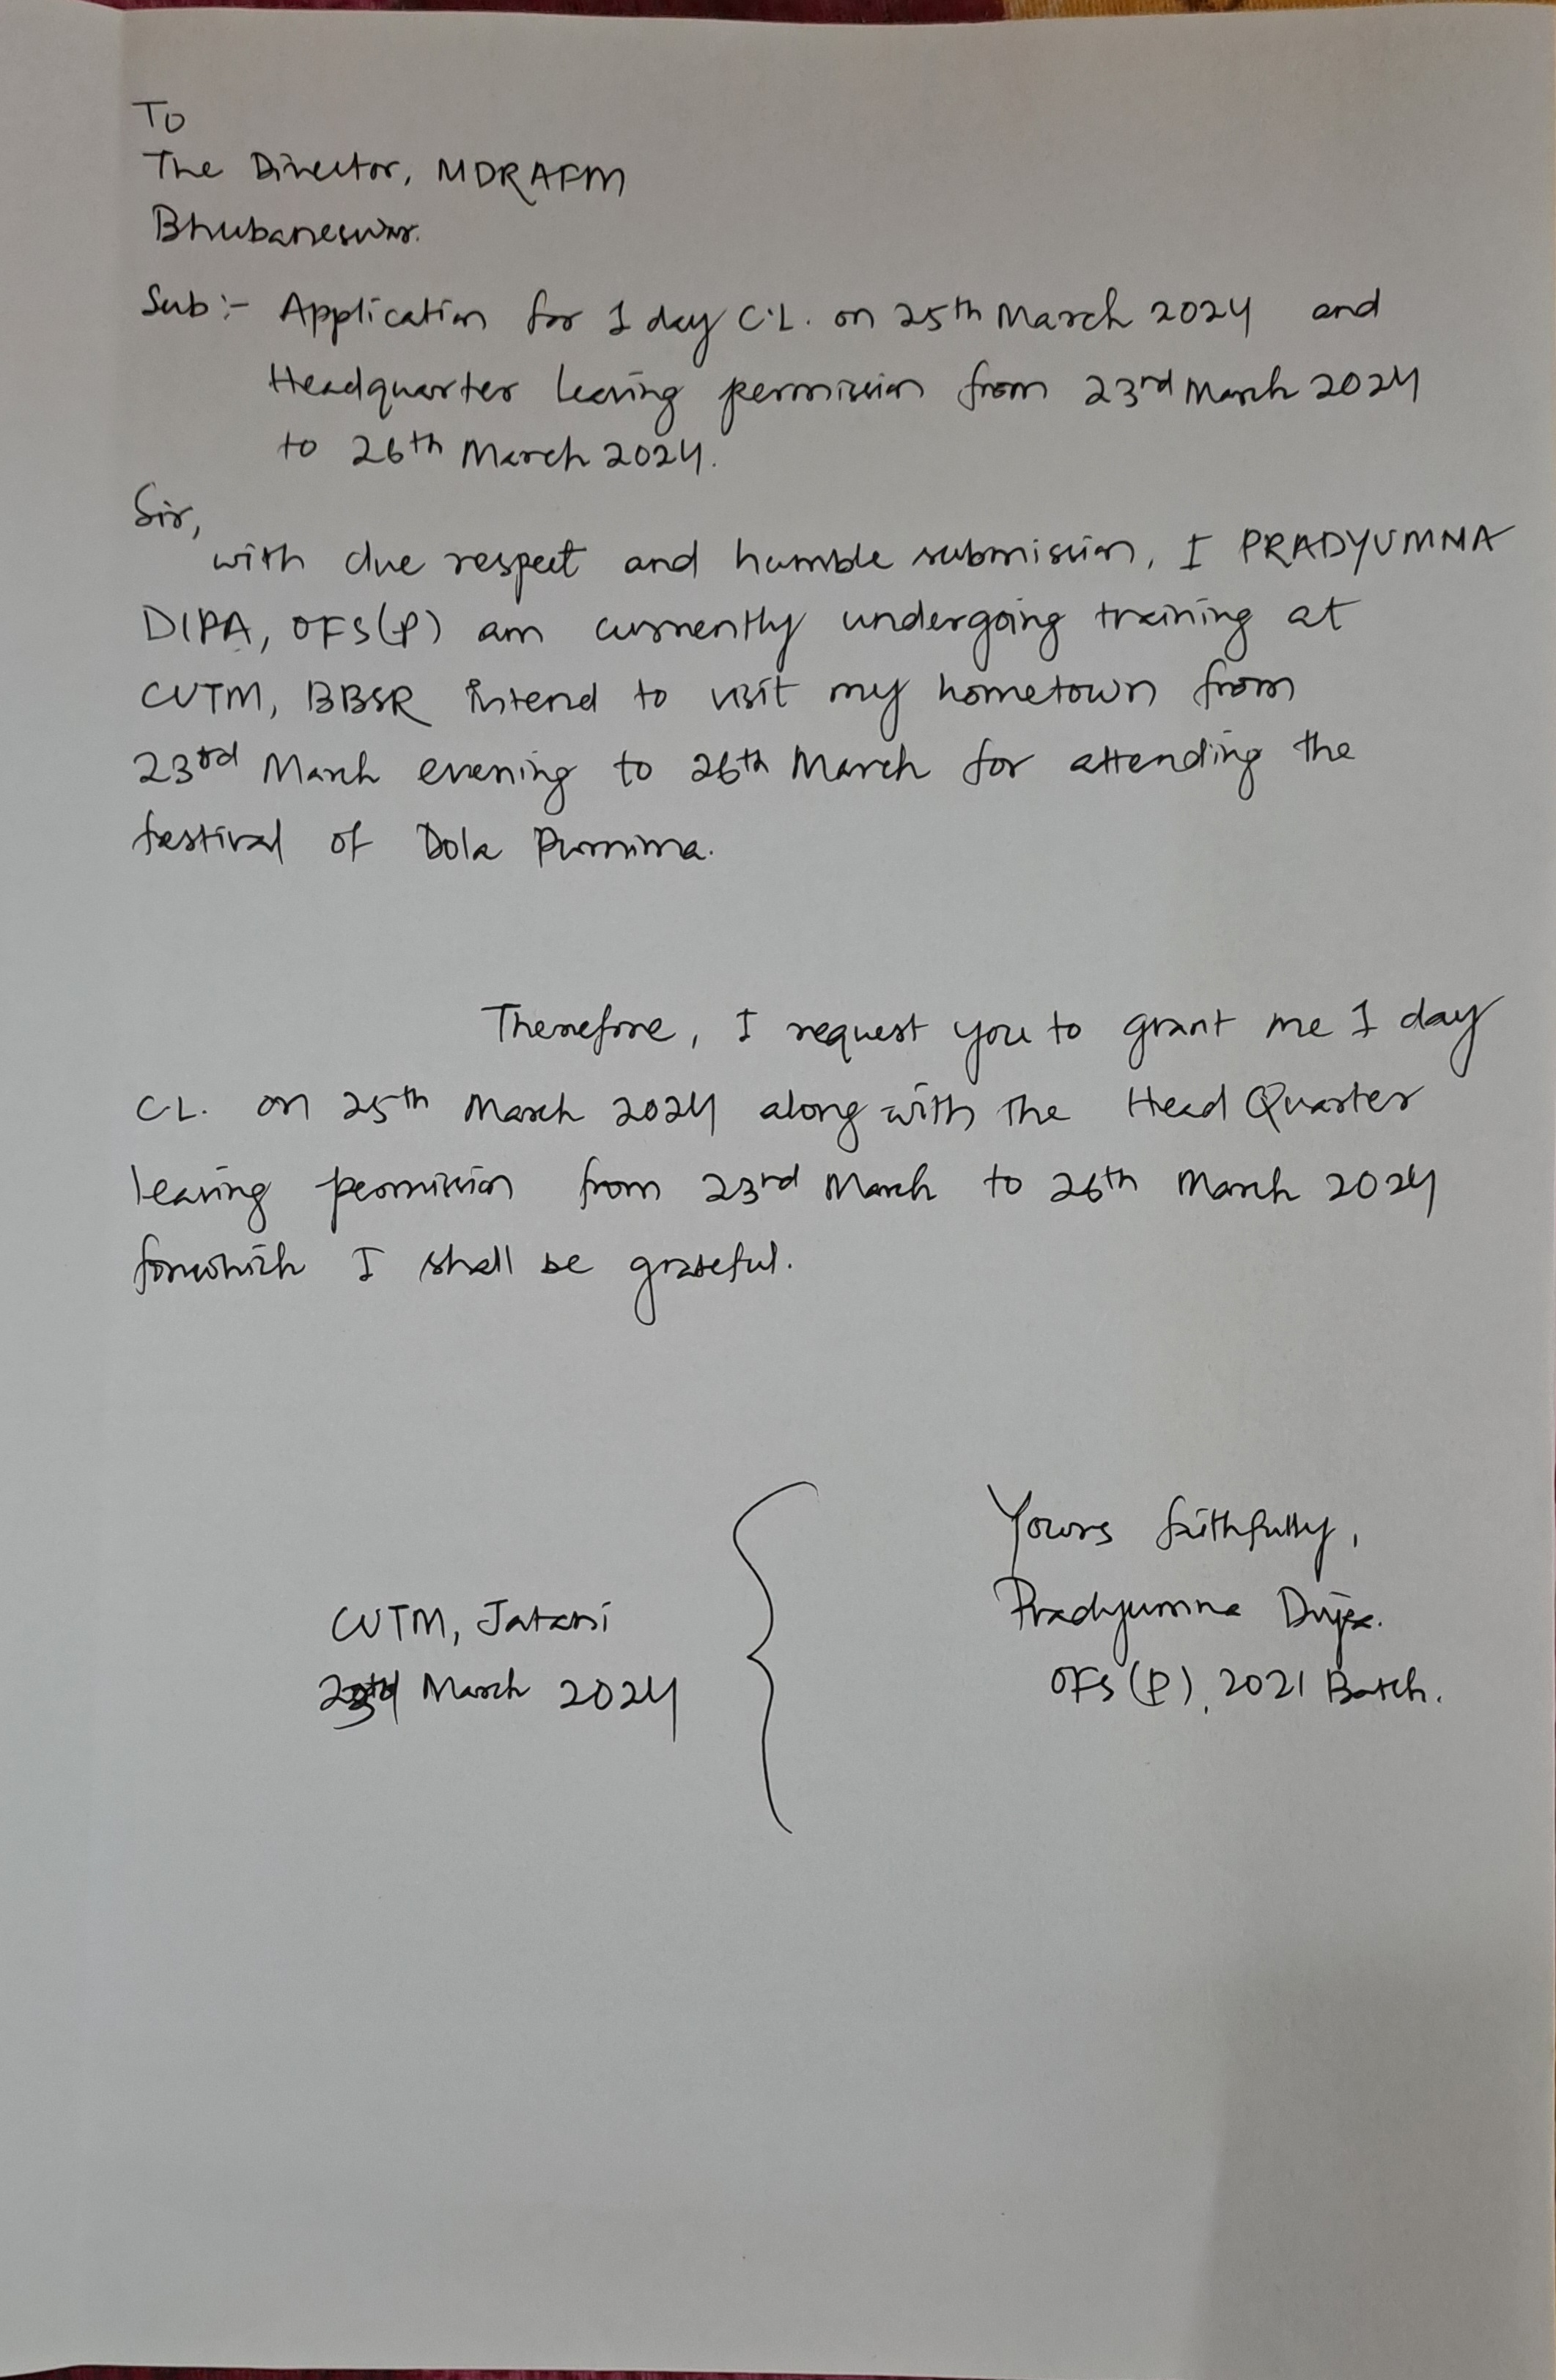 To
The Director, MDRAFM
Bhubaneswar.
Sub:- Application for 1 day C.L. on 25th March 2024 and
Headquarter leaving permission from 23rd March 2024
to 26th March 2024.
Sir,
with due respect and humble submission, I PRADYUMNA
DIPA, OFS(P) am currently undergoing training at
CUTM, BBSR intend to visit my hometown from
23rd March evening to 26th March for attending the
festival of Dola Purnima.
Therefore, I request you to grant me 1 day
C.L. on 25th March 2024 along with the Head Quarter
leaving permission from 23rd March to 26th March 2024
forwhich I shall be grateful.
Yours faithfully,
Pradyumna Dipa.
OFS (P), 2021 Batch.
CUTM, Jatani
March 2024